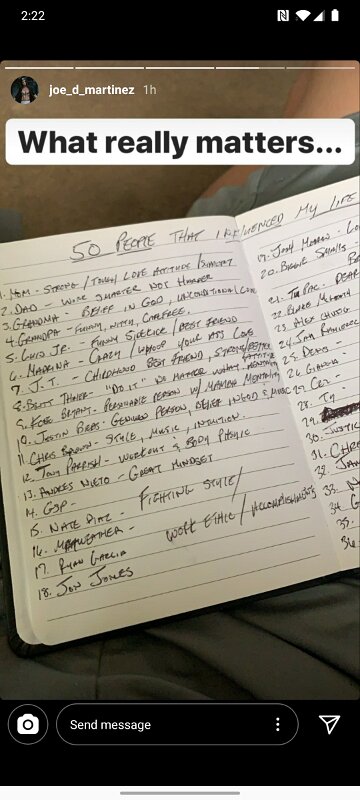 2:22
joe_d_martinez 1h
What really matters...
50 PEOPLE THAT INFLUENCED MY LIFE
1. MOM - STRONG / TOUGH LOVE ATTITUDE /
2. DAD - WORK SMARTER NOT HARDER
3. GRANDMA - BELIEF IN GOD, UNCONDITIONAL LOVE
4. GRANDPA - FUNNY, WITTY, CAREFREE.
5. LUIS JR. - FUNNY SIDEKICK / BEST FRIEND
6. MADRINA - CRAZY / WHOOP YOUR ASS LOVE
7. J.T. - CHILDHOOD BEST FRIEND,
8. BRITT - "DO IT" NO MATTER WHAT
9. KOBE BRYANT - PERSON W/ MAMBA MENTALITY
10. JUSTIN - GENUINE PERSON, BELIEF IN GOD & MUSIC
11. CHRIS BROWN - STYLE, MUSIC, INTUITION.
12. TONY PARRISH - WORKOUT & BODY PHYSIC
13. ANDRES NIETO - GREAT MINDSET
14. GSP -
15. NATE DIAZ - FIGHTING STYLE /
16. MAYWEATHER - WORK ETHIC / ACCOMPLISHMENTS
17. RYAN GARCIA
18. JON JONES
19. JOSH
20. BIGGIE SMALLS
21. TU PAC.
22.
23. ALEX
24.
25. DENIS -
26.
27.
28. TY
29.
30. JUSTIC
31. CHRI
32. JAN
33. N
34. G
35.
36.
Send message